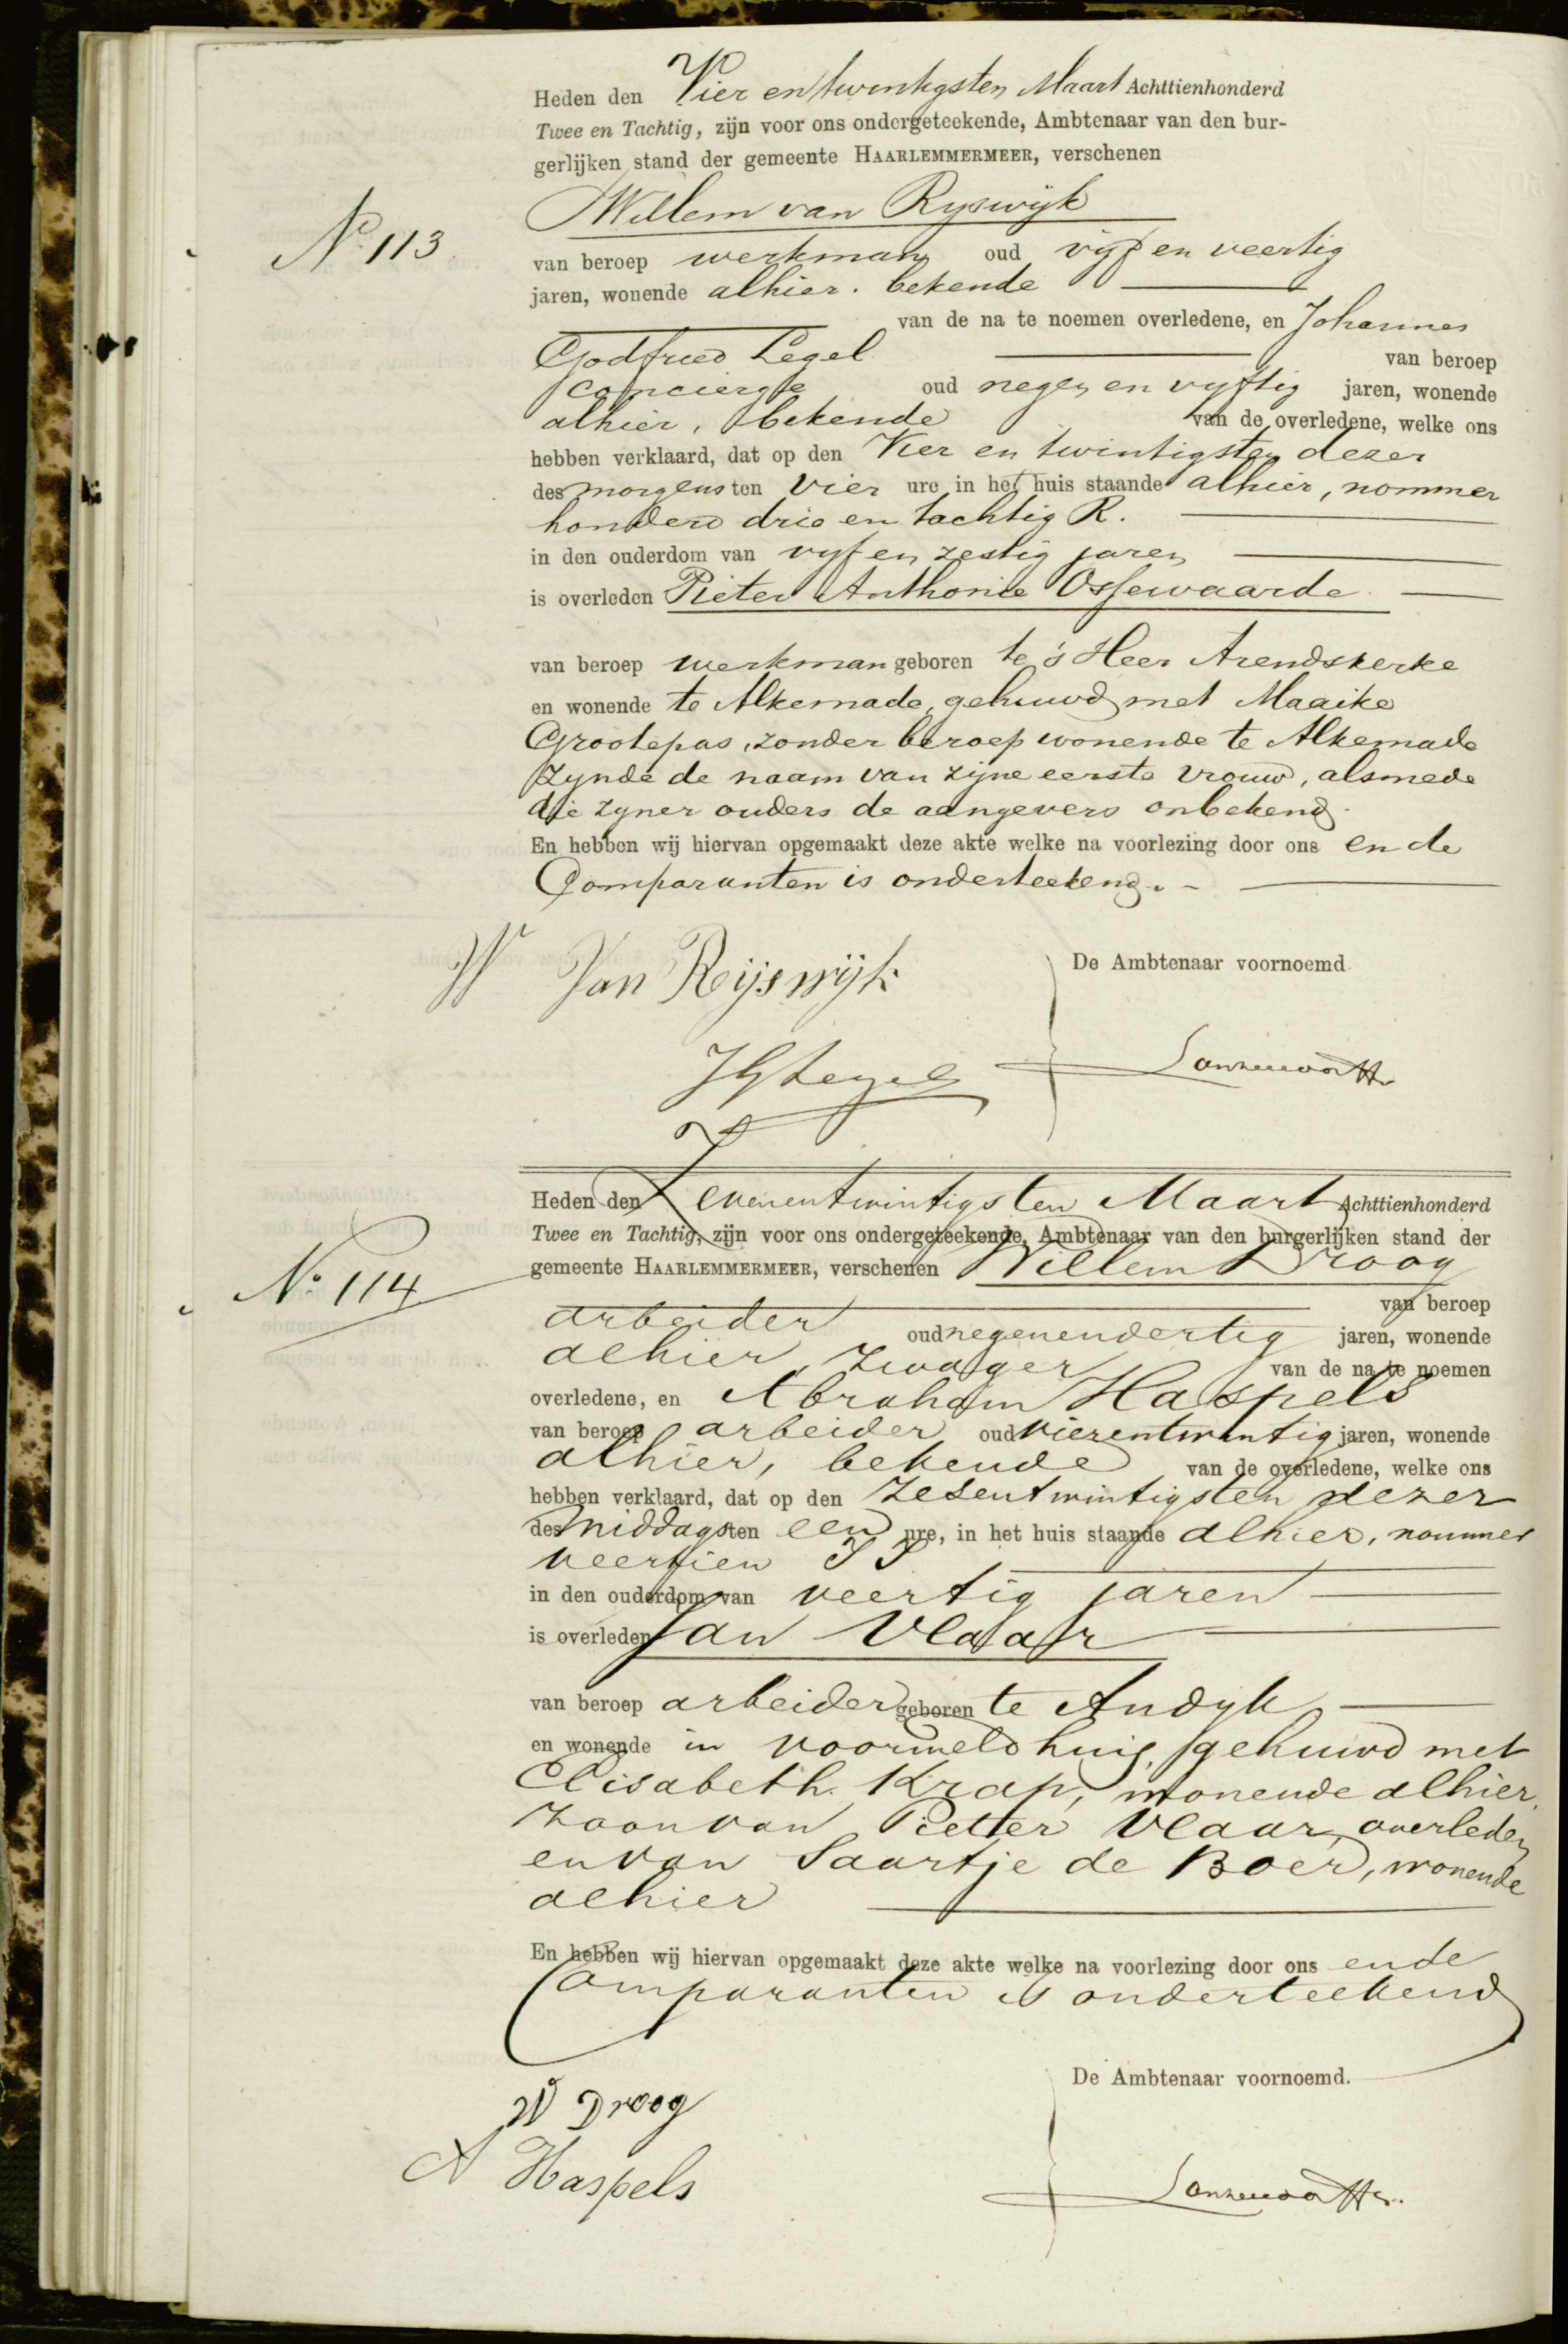 Heden den Vier en twintigsten Maart Achttienhonderd
Twee en Tachtig, zijn voor ons ondergeteekende, Ambtenaar van den bur-
gerlijken stand der gemeente HAARLEMMERMEER, verschenen
Willem van Ryswijk
No. 113
van beroep werkman oud vijf en veertig
jaren, wonende alhier. bekende
van de na te noemen overledene, en Johannes
Godfried Legel van beroep
concierge oud negen en vyftig jaren, wonende
alhier, bekende van de overledene, welke ons
hebben verklaard, dat op den Vier en twintigsten dezer
des morgens ten vier ure in het huis staande alhier, nommer
honderd drie en tachtig R.
in den ouderdom van vyf en zestig jaren
is overleden Pieter Anthonie Ossewaarde
van beroep werkman geboren te 's Heer Arendskerke
en wonende te Alkemade, gehuwd met Maaike
Grootepas, zonder beroep wonende te Alkemade
zynde de naam van zijne eerste vrouw, alsmede
die zyner ouders de aangevers onbekend.
En hebben wij hiervan opgemaakt deze akte welke na voorlezing door ons en de
Comparanten is onderteekend.
W Van Reijswijk
De Ambtenaar voornoemd.
JG Legel
Heden den Zevenentwintigsten Maart Achttienhonderd
Twee en Tachtig, zijn voor ons ondergeteekende, Ambtenaar van den burgerlijken stand der
gemeente HAARLEMMERMEER, verschenen Willem Droog
No. 114
van beroep
arbeider oud negenendertig jaren, wonende
alhier, zwager van de na te noemen
overledene, en Abraham Haspels
van beroep arbeider oud vierentwintig jaren, wonende
alhier, bekende van de overledene, welke ons
hebben verklaard, dat op den zesentwintigsten dezer
des middags ten een ure, in het huis staande alhier, nommer
veertien
in den ouderdom van veertig jaren
is overleden Jan Vlaar
van beroep arbeider geboren te Andyk
en wonende in voormeld huis, gehuwd met
Elisabeth Krap, wonende alhier,
zoon van Pietter Vlaar, overleden
en van Saartje de Boer, wonende
alhier
En hebben wij hiervan opgemaakt deze akte welke na voorlezing door ons en de
Comparanten is onderteekend
De Ambtenaar voornoemd.
W Droog
A Haspels